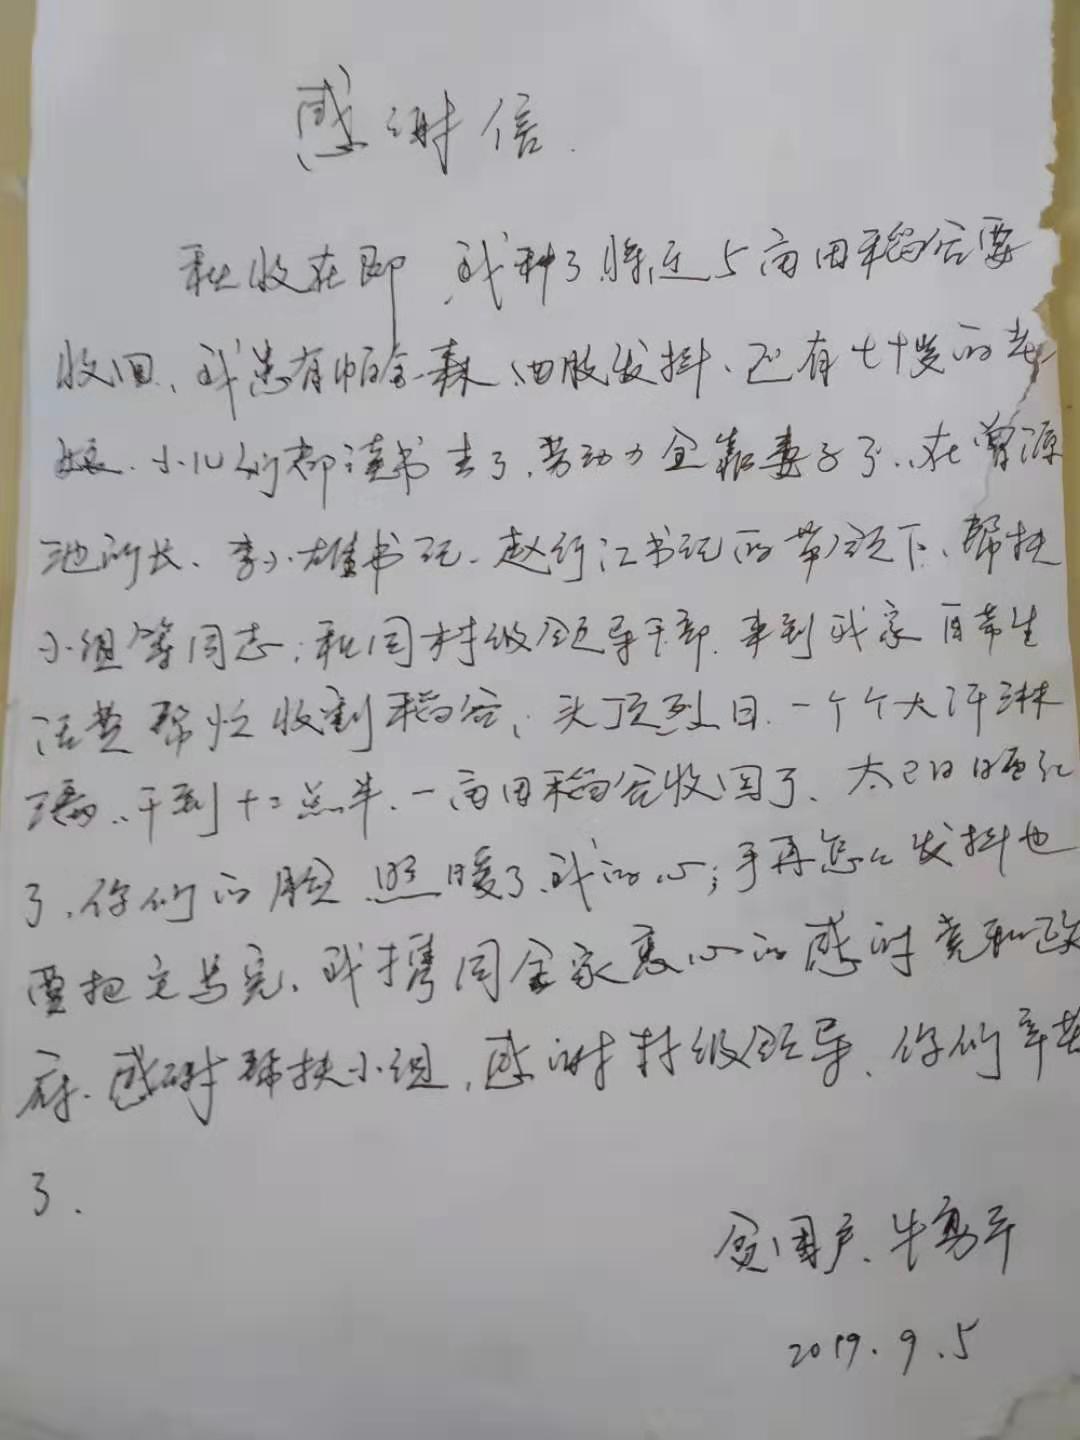 感谢信.
秋收在即,我种了将近5亩田稻谷要
收回、我患有帕金森、四肢发抖、还有七十岁的老
娘、小儿们都读书去了、劳动力全靠妻子了、在曾源
池所长、李小雄书记、赵行江书记的带领下、帮扶
小组等同志;和同村级领导干部、来到我家 百常生
活费帮忙收割稻谷;头顶烈日、一个个大汗淋
漓、干到十二点半、一亩田稻谷收回了、太阳晒红
了、你们的脸 照暖了我的心;手再怎么发抖也
要把它写完、我携同全家衷心的感谢党和政
府、感谢帮扶小组,感谢村级领导、你们辛苦
了.
贫困户、牛勇平
2019.9.5